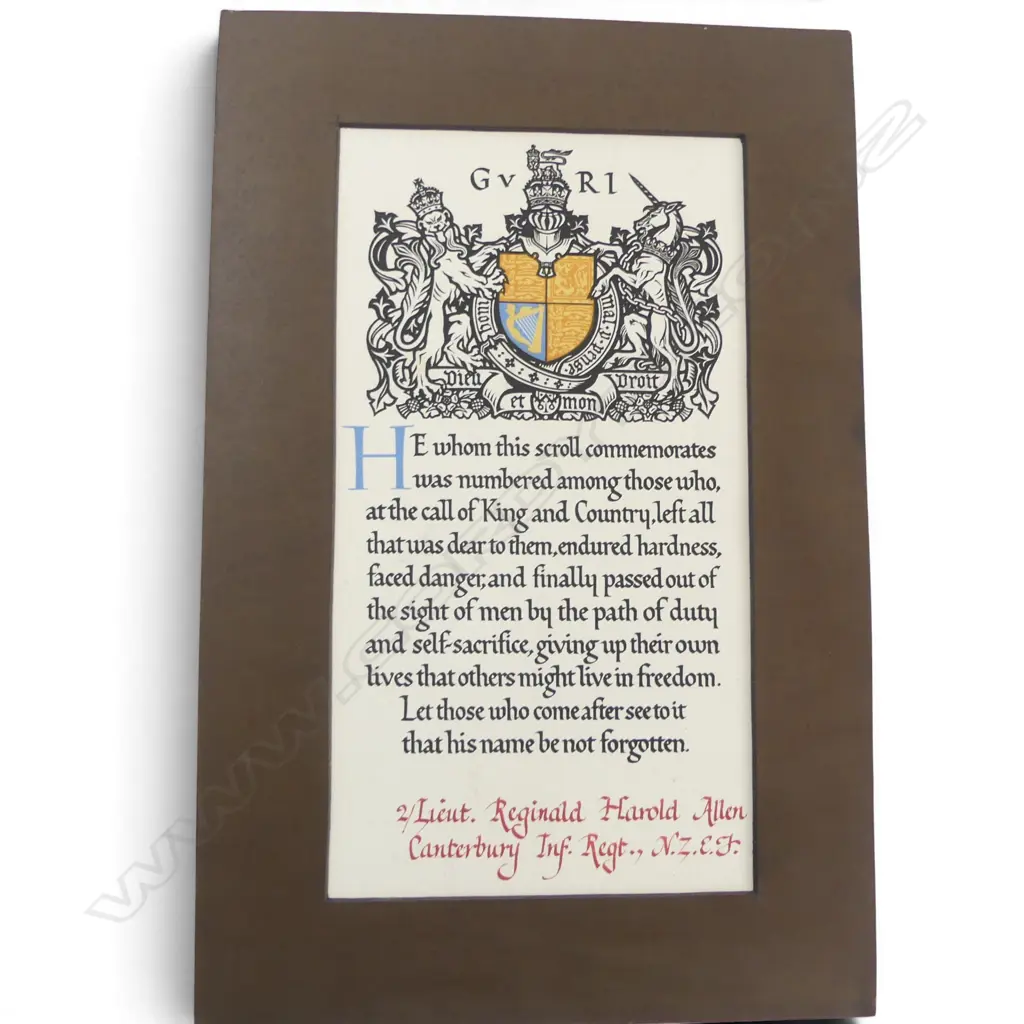 GV RI
Honi soit qui mal y pense
Dieu et mon Droit
HE whom this scroll commemorates
was numbered among those who,
at the call of King and Country, left all
that was dear to them, endured hardness,
faced danger, and finally passed out of
the sight of men by the path of duty
and self-sacrifice, giving up their own
lives that others might live in freedom.
Let those who come after see to it
that his name be not forgotten.
2/Lieut. Reginald Harold Allen
Canterbury Inf. Regt., N.Z.E.F.